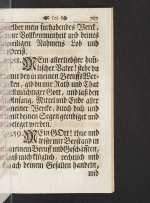 selber mein fürhabendes Werck,
zur Vollkommenheit und deines
heiligen Nahmens Lob und
Preiß.
MEin allerliebster himm-
lischer Vater! stehe du
mir bey in meinen Beruffs Wer-
cken, gib du mir Rath und That
allmächtiger Gott, und laß den
Anfang, Mittel und Ende aller
meiner Wercke, durch dich und
deinen Segen greettiget und
geleget werden.
MEin GOtt! thue und
mit Beystand in
meinem Beruff und Geschäfften,
daß ich klüglich, rechtlich und
nach deinem Gefallen handele,
und